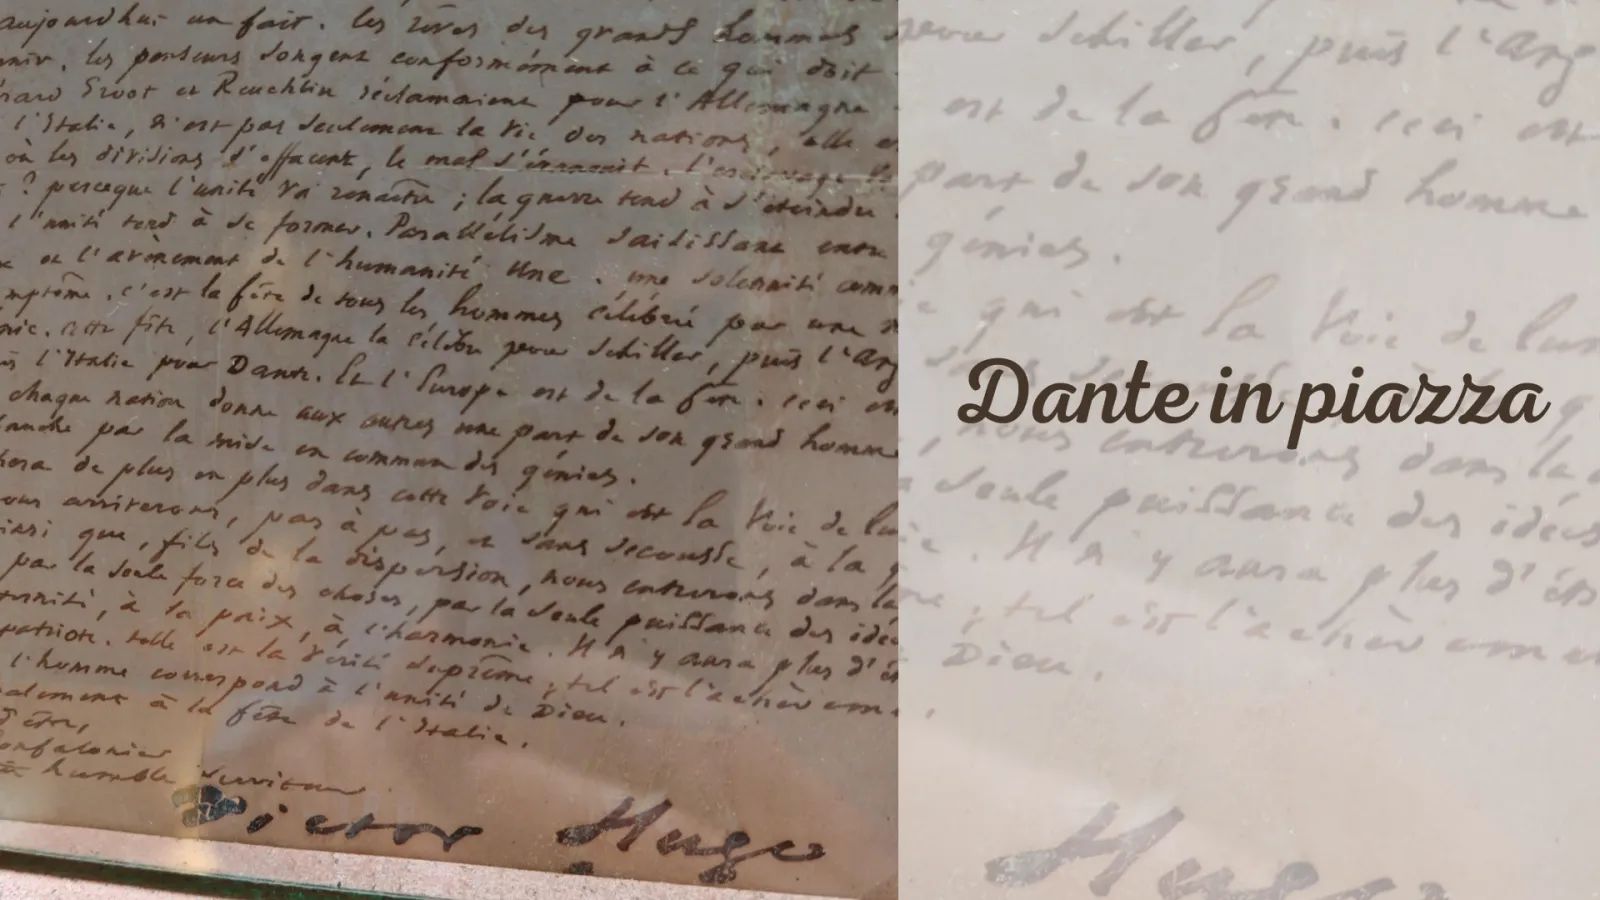 aujourd'hui un fait. les rêves des grands hommes
les penseurs songent conformément à ce qui doit
Groot et Reuchlin réclamaient pour l'Allemagne
l'Italie, n'est pas seulement la vie des nations, elle
où les divisions s'effacent, le mal s'évanouit. l'esclavage
? parceque l'unité va renaître ; la guerre tend à s'éteindre
l'unité tend à se former. Parallélisme saisissant entre
et l'avènement de l'humanité une. une solennité comm
c'est la fête de tous les hommes célébrée par une
cette fête, l'Allemagne la célèbre pour Schiller, puis l'Ang
l'Italie pour Dante. Et l'Europe est de la fête. ceci est
chaque nation donne aux autres une part de son grand homme
par la mise en commun des génies.
de plus en plus dans cette voie qui est la voie de lum
arriverons, pas à pas, et sans secousse, à la
que, fils de la dispersion, nous entrerons dans la
par la seule force des choses, par la seule puissance des idées
à la paix, à l'harmonie. Il n'y aura plus d'ét
telle est la vérité suprême ; tel est l'achèvemen
l'homme correspond à l'unité de Dieu.
à la fête de l'Italie.
humble serviteur
Victor Hugo
pour Schiller, puis l'Ang
est de la fête. ceci est
part de son grand homme
génies.
qui est la voie de lum
Dante in piazza
nous entrerons dans la
seule puissance des idées
Il n'y aura plus d'ét
tel est l'achèvemen
Dieu.
Hugo